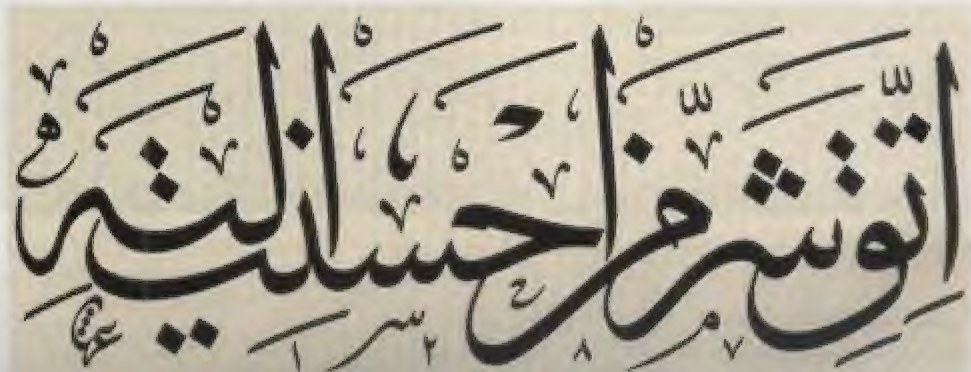 اتق شر من احسنت اليه
١٢٨٧